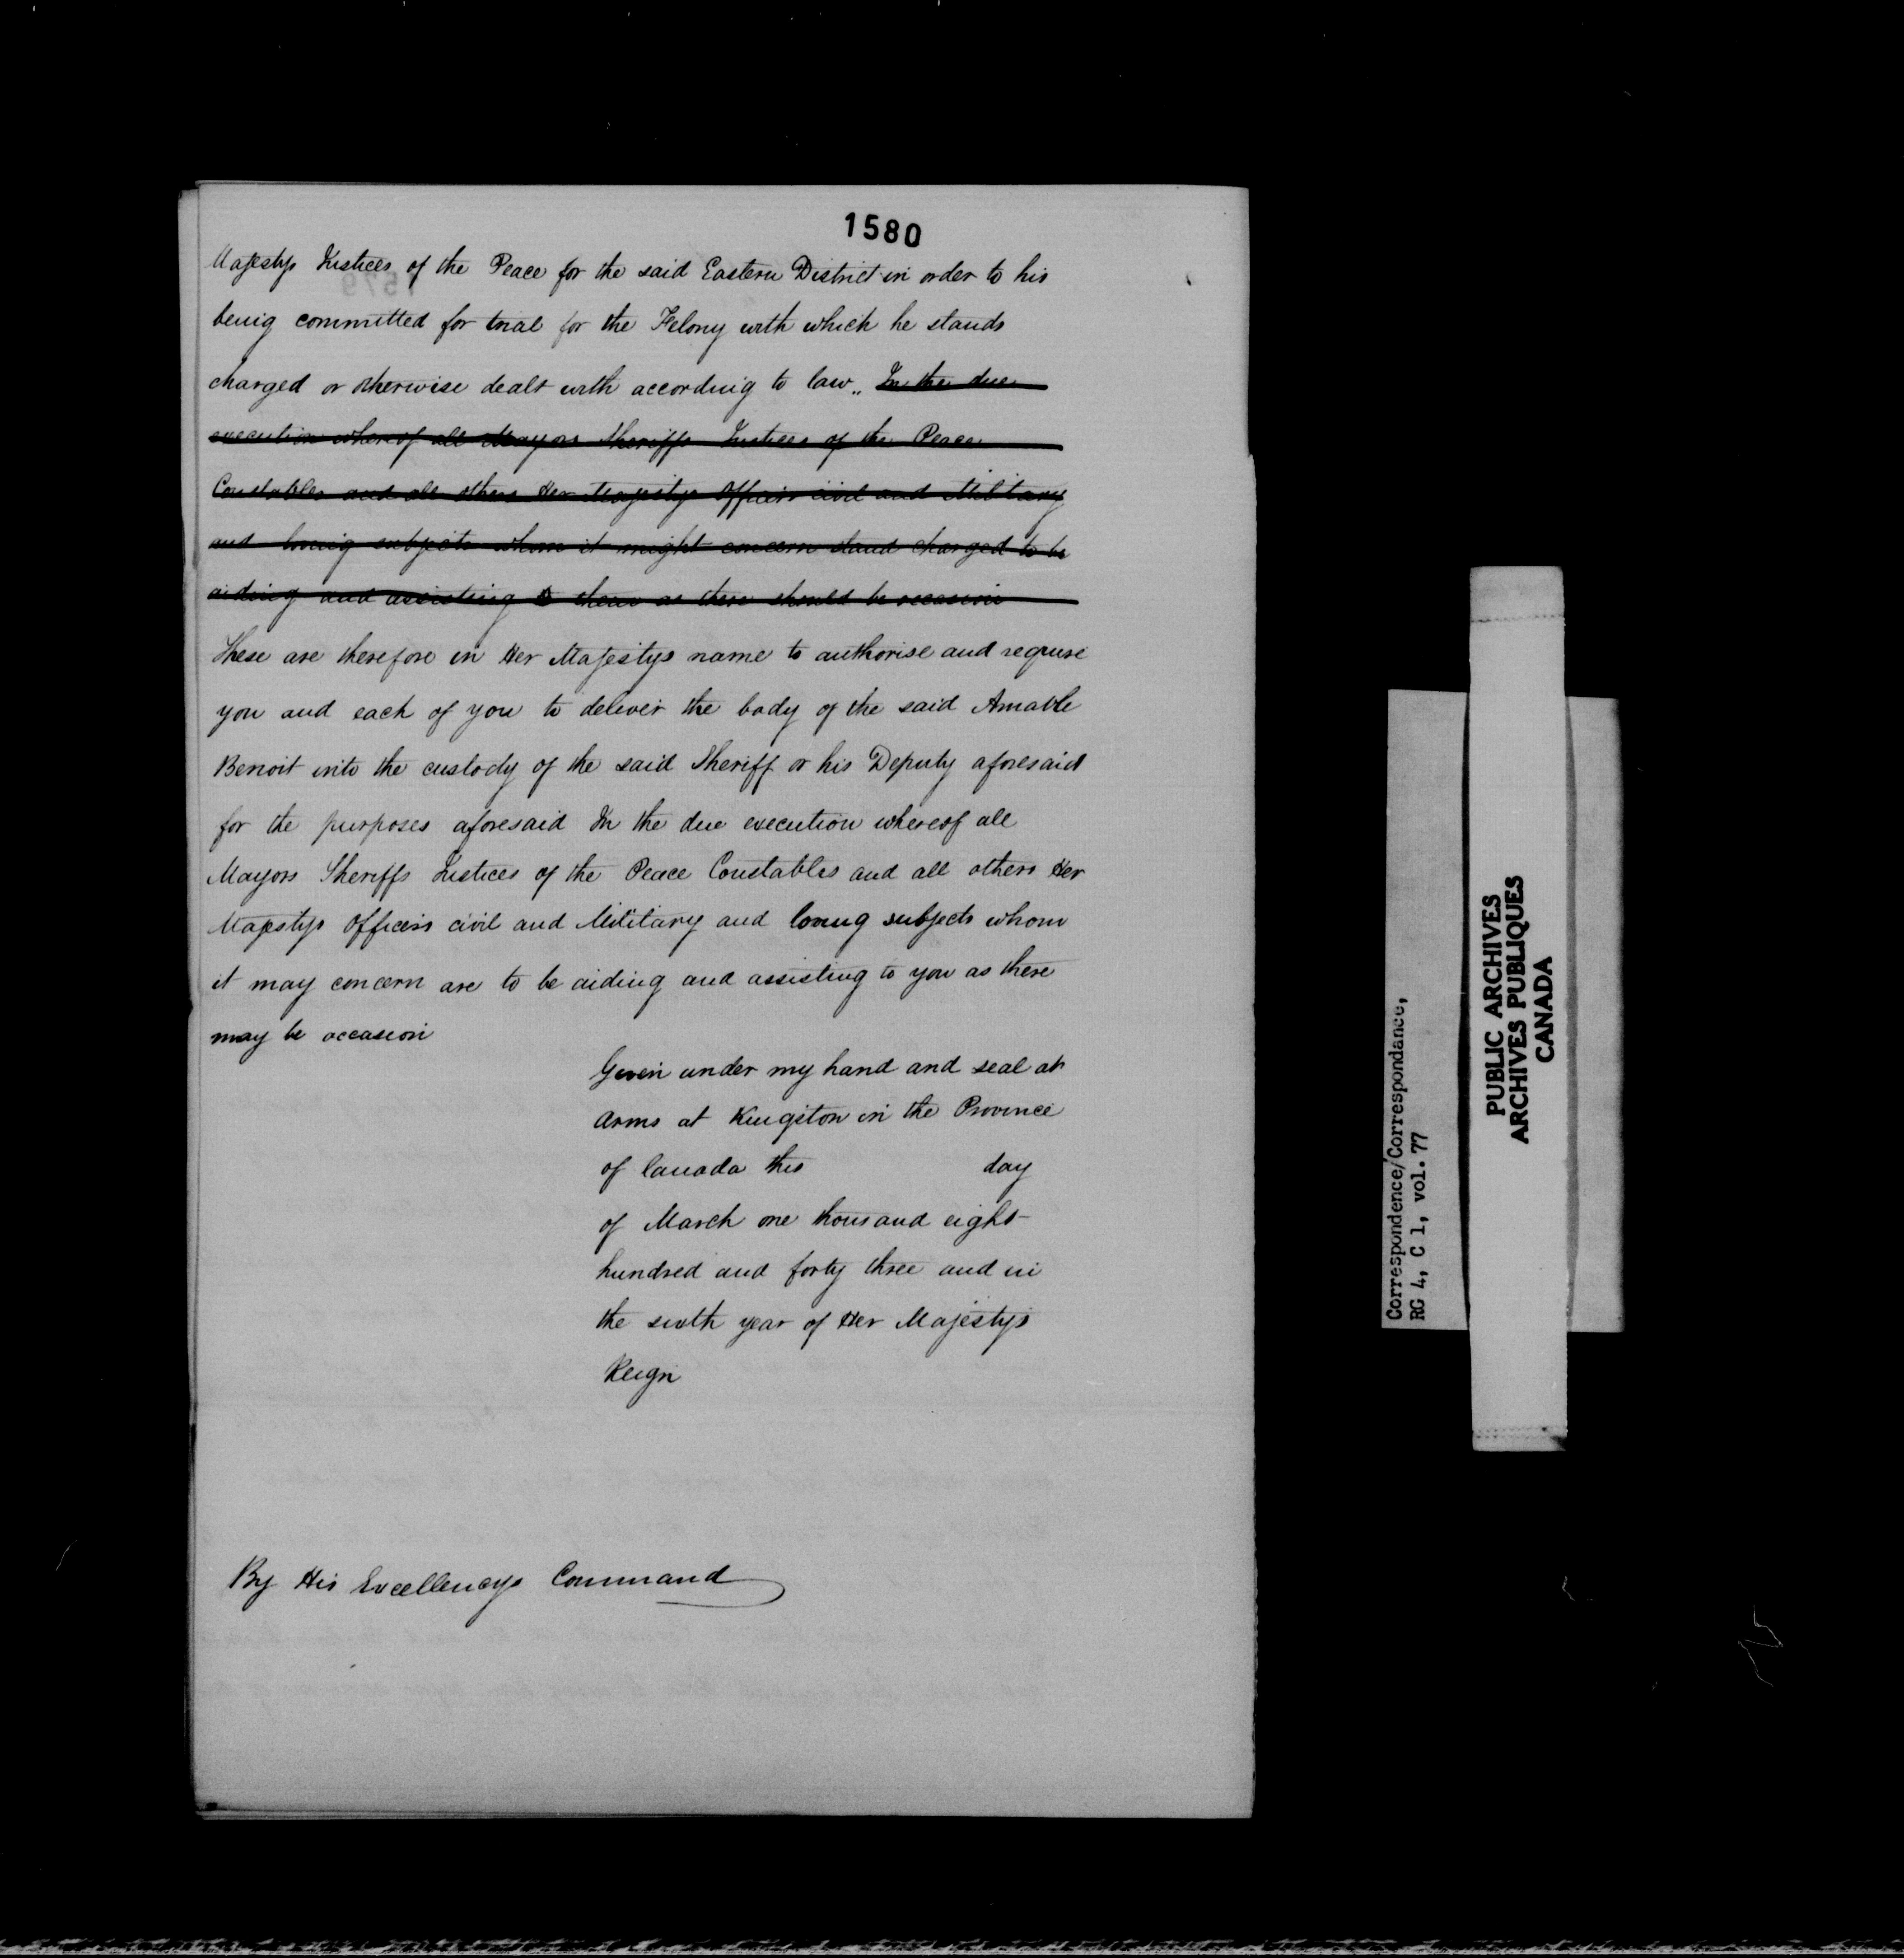 1580
Majestys Justices of the Peace for the said Eastern District in order to his
being committed for trial for the Felony with which he stands
charged or otherwise dealt with according to law,, In the due
execution whereof all Mayors Sheriffs Justices of the Peace
Constables and all others Her Majestys Officers civil and Military
and loving subjects whom it might concern stand charged to be
aiding and assisting to them as there should be occasion
These are therefore in Her Majestys name to authorise and require
you and each of you to deliver the body of the said Amable
Benoit into the custody of the said Sheriff or his Deputy aforesaid
for the purposes aforesaid In the due execution whereof all
Mayors Sheriffs Justices of the Peace Constables and all others Her
Majestys Officers civil and Military and loving subjects whom
it may concern are to be aiding and assisting to you as there
may be occasion
Given under my hand and seal at
Arms at Kingston in the Province
of Canada this day
of March one thousand eight
hundred and forty three and in
the sixth year of Her Majestys
Reign
By His Excellencys Command
Correspondence/Correspondance,
RG 4, C 1, vol. 77
PUBLIC ARCHIVES
ARCHIVES PUBLIQUES
CANADA